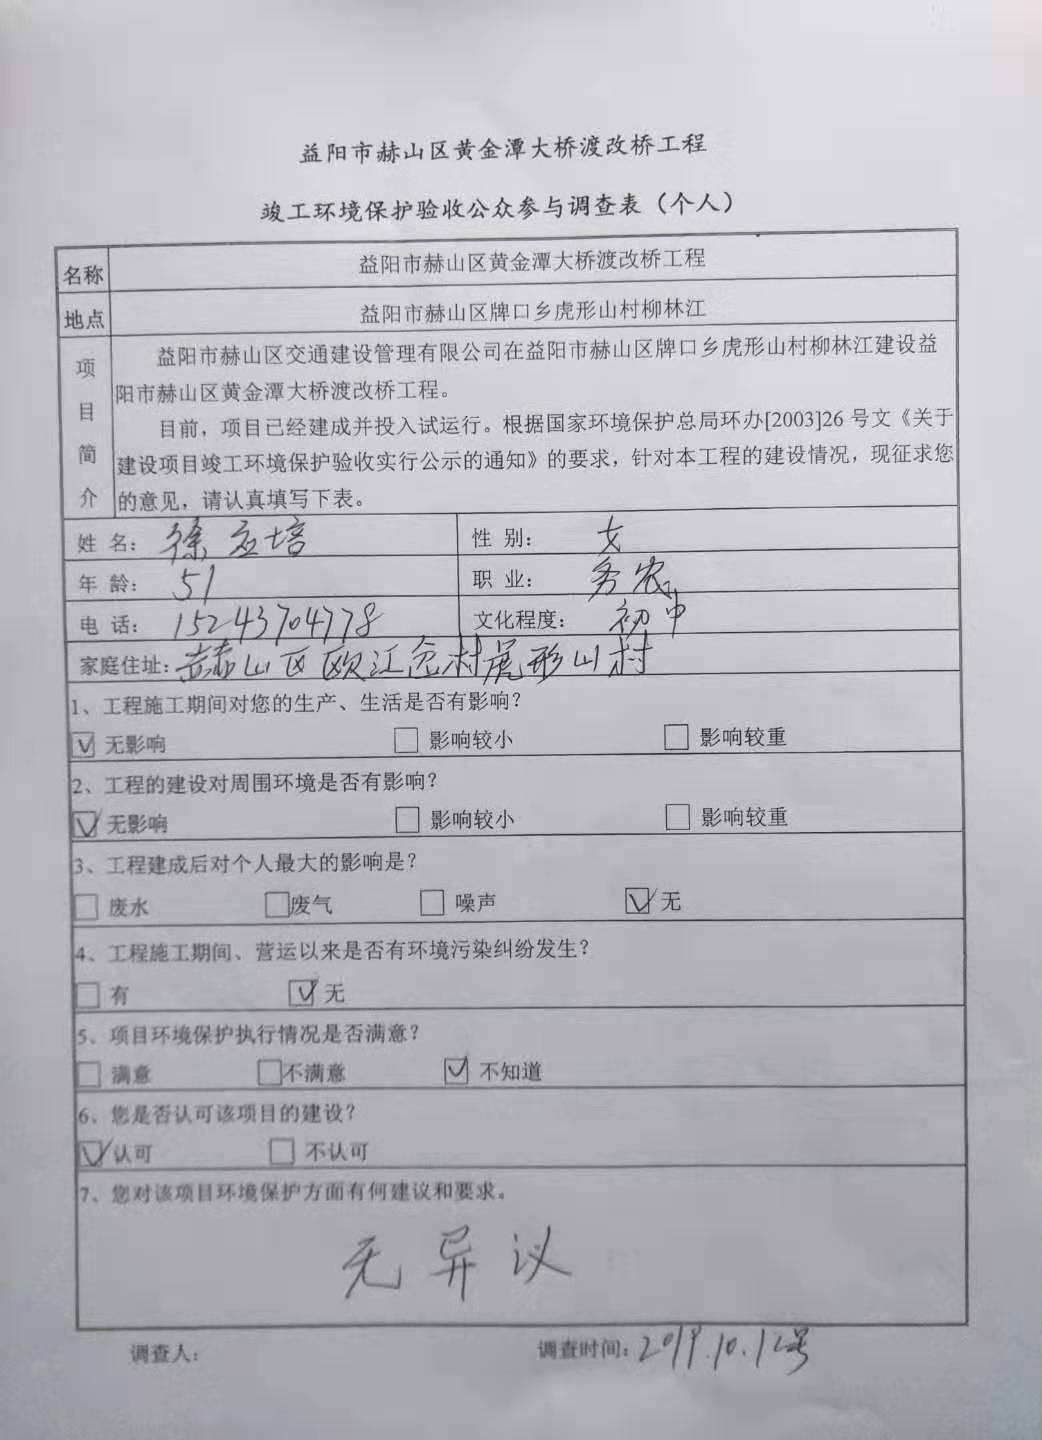 益阳市赫山区黄金潭大桥渡改桥工程
竣工环境保护验收公众参与调查表（个人）
名称 益阳市赫山区黄金潭大桥渡改桥工程
地点 益阳市赫山区牌口乡虎形山村柳林江
项目简介
益阳市赫山区交通建设管理有限公司在益阳市赫山区牌口乡虎形山村柳林江建设益
阳市赫山区黄金潭大桥渡改桥工程。
目前，项目已经建成并投入试运行。根据国家环境保护总局环办[2003]26 号文《关于
建设项目竣工环境保护验收实行公示的通知》的要求，针对本工程的建设情况，现征求您
的意见，请认真填写下表。
姓 名： 徐 培 性 别： 女
年 龄： 51 职 业： 务农
电 话： 15243704778 文化程度： 初中
家庭住址：赫山区欧江岔村虎形山村
1、工程施工期间对您的生产、生活是否有影响？
☑ 无影响 □ 影响较小 □ 影响较重
2、工程的建设对周围环境是否有影响？
☑ 无影响 □ 影响较小 □ 影响较重
3、工程建成后对个人最大的影响是？
□ 废水 □废气 □ 噪声 ☑ 无
4、工程施工期间、营运以来是否有环境污染纠纷发生？
□ 有 ☑ 无
5、项目环境保护执行情况是否满意？
□ 满意 □不满意 ☑ 不知道
6、您是否认可该项目的建设？
☑认可 □ 不认可
7、您对该项目环境保护方面有何建议和要求。
无异议
调查人： 调查时间：2019.10.12号